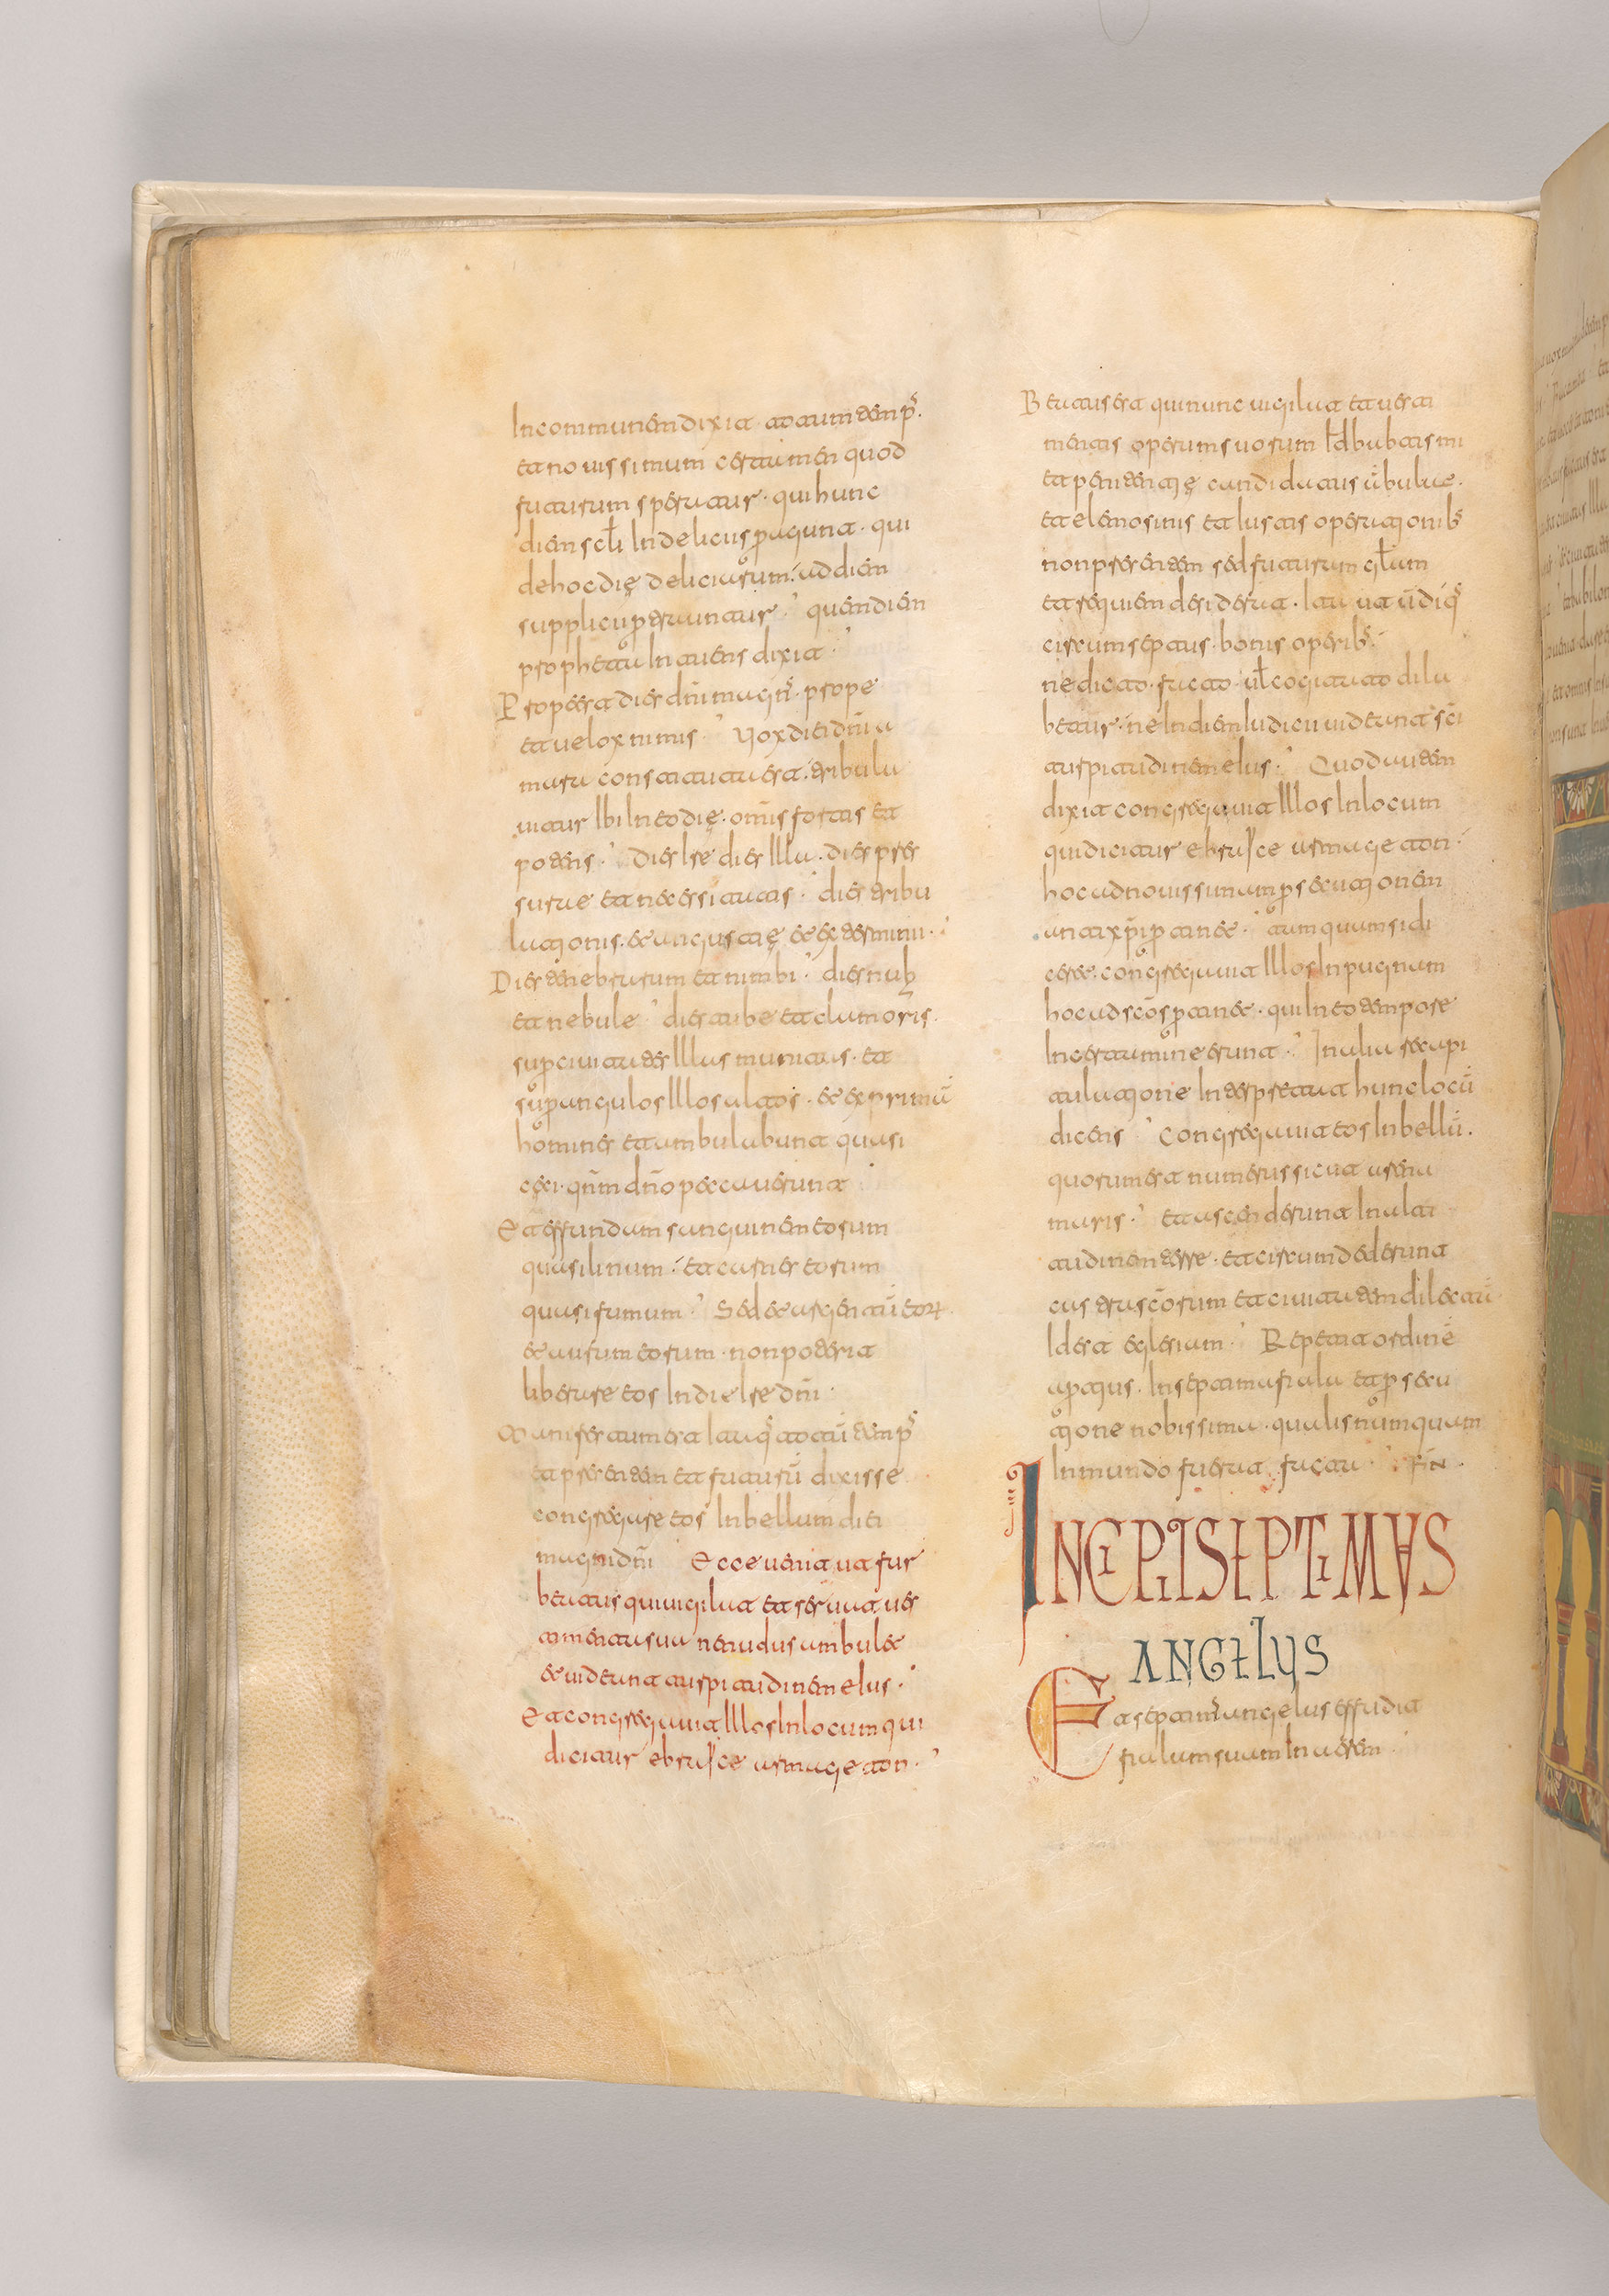 In commune dixit totum temp̄s.
et nouissimum certamen quod
futurum speratur. qui hunc
diem sclī in deliciis peragunt. qui
de hoc die deliciarum. ad diem
quem diem
propheta intuens dixit.
Properat dies dn̄i magn̄s. prope
et uelox nimis. Uox diei dn̄i a
mara tribula
uitur ibi in eo die. om̄is fortis et
potens. Dies ire dies illa. dies pres
sure et necessitatis. dies tribu
lationis. et angustię et exterminii.
Dies tenebrarum et nimbi. dies nub̄
et nebule. dies tube et clamoris.
super ciuitates illas munitas. et
super angulos illos altos. et exprimā
homines et ambulabunt quasi
cęci. qn̄m dn̄o peccauerunt
Et effundam sanguinem eorum
quasi limum. et carnes eorum
quasi fumum. Sed et argentū eor̄
et aurum eorum. non poterit
liberare eos in die ire dn̄i.
Manifestum est itaq̄ totū temp̄s
et presentem et futurū dixisse
congregare eos in bellum diei
magni dn̄i Ecce uenit ut fur
beatus qui uigilat et seruat ues
timenta sua ne nudus ambulet
et uideant turpitudinem eius.
Et congregauit illos in locum qui
dicitur ebrayce armageton.
Beatus est qui nunc uigilat et uesti
mentis operum suorum id babtismi
et penitentię candidatus ābulat.
et elemosinis et iustis operationib̄
non presentem sed futurum sclūm
et requiem desiderat. ita ut undiq̄
circumseptus. bonis operib̄.
ne dicto. facto. ul̄ cogitato dila
betur. ne in diem iudicii uideant sc̄i
turpitudinem eius. Quod autem
dixit congregauit illos in locum
qui dicitur ebrayce armageton.
hoc ad nouissimam persecutionem
antixp̄i pertinet. tamquam si di
ceret. congregauit illos in pugnam
hoc ad sc̄os pertinet. qui in eo tempore
in certamine erunt. In alia recapi
tulatione interpretatur hunc locū
dicens Congregauit eos in bellū.
quorum est numerus sicut arena
maris. et ascenderunt in alti
tudinem terre. et circumdederunt
castra sc̄orum et ciuitatem dilectā
id est eclesiam. Repetit ordinē
ceptus. in septima fiala et persecu
tione nobissima. qualis numquam
in mundo fuerat facta. FIN.
INCIPIT SEPTIMUS
ANGELUS
Et septimus angelus effudit
fialam suam in aerem.